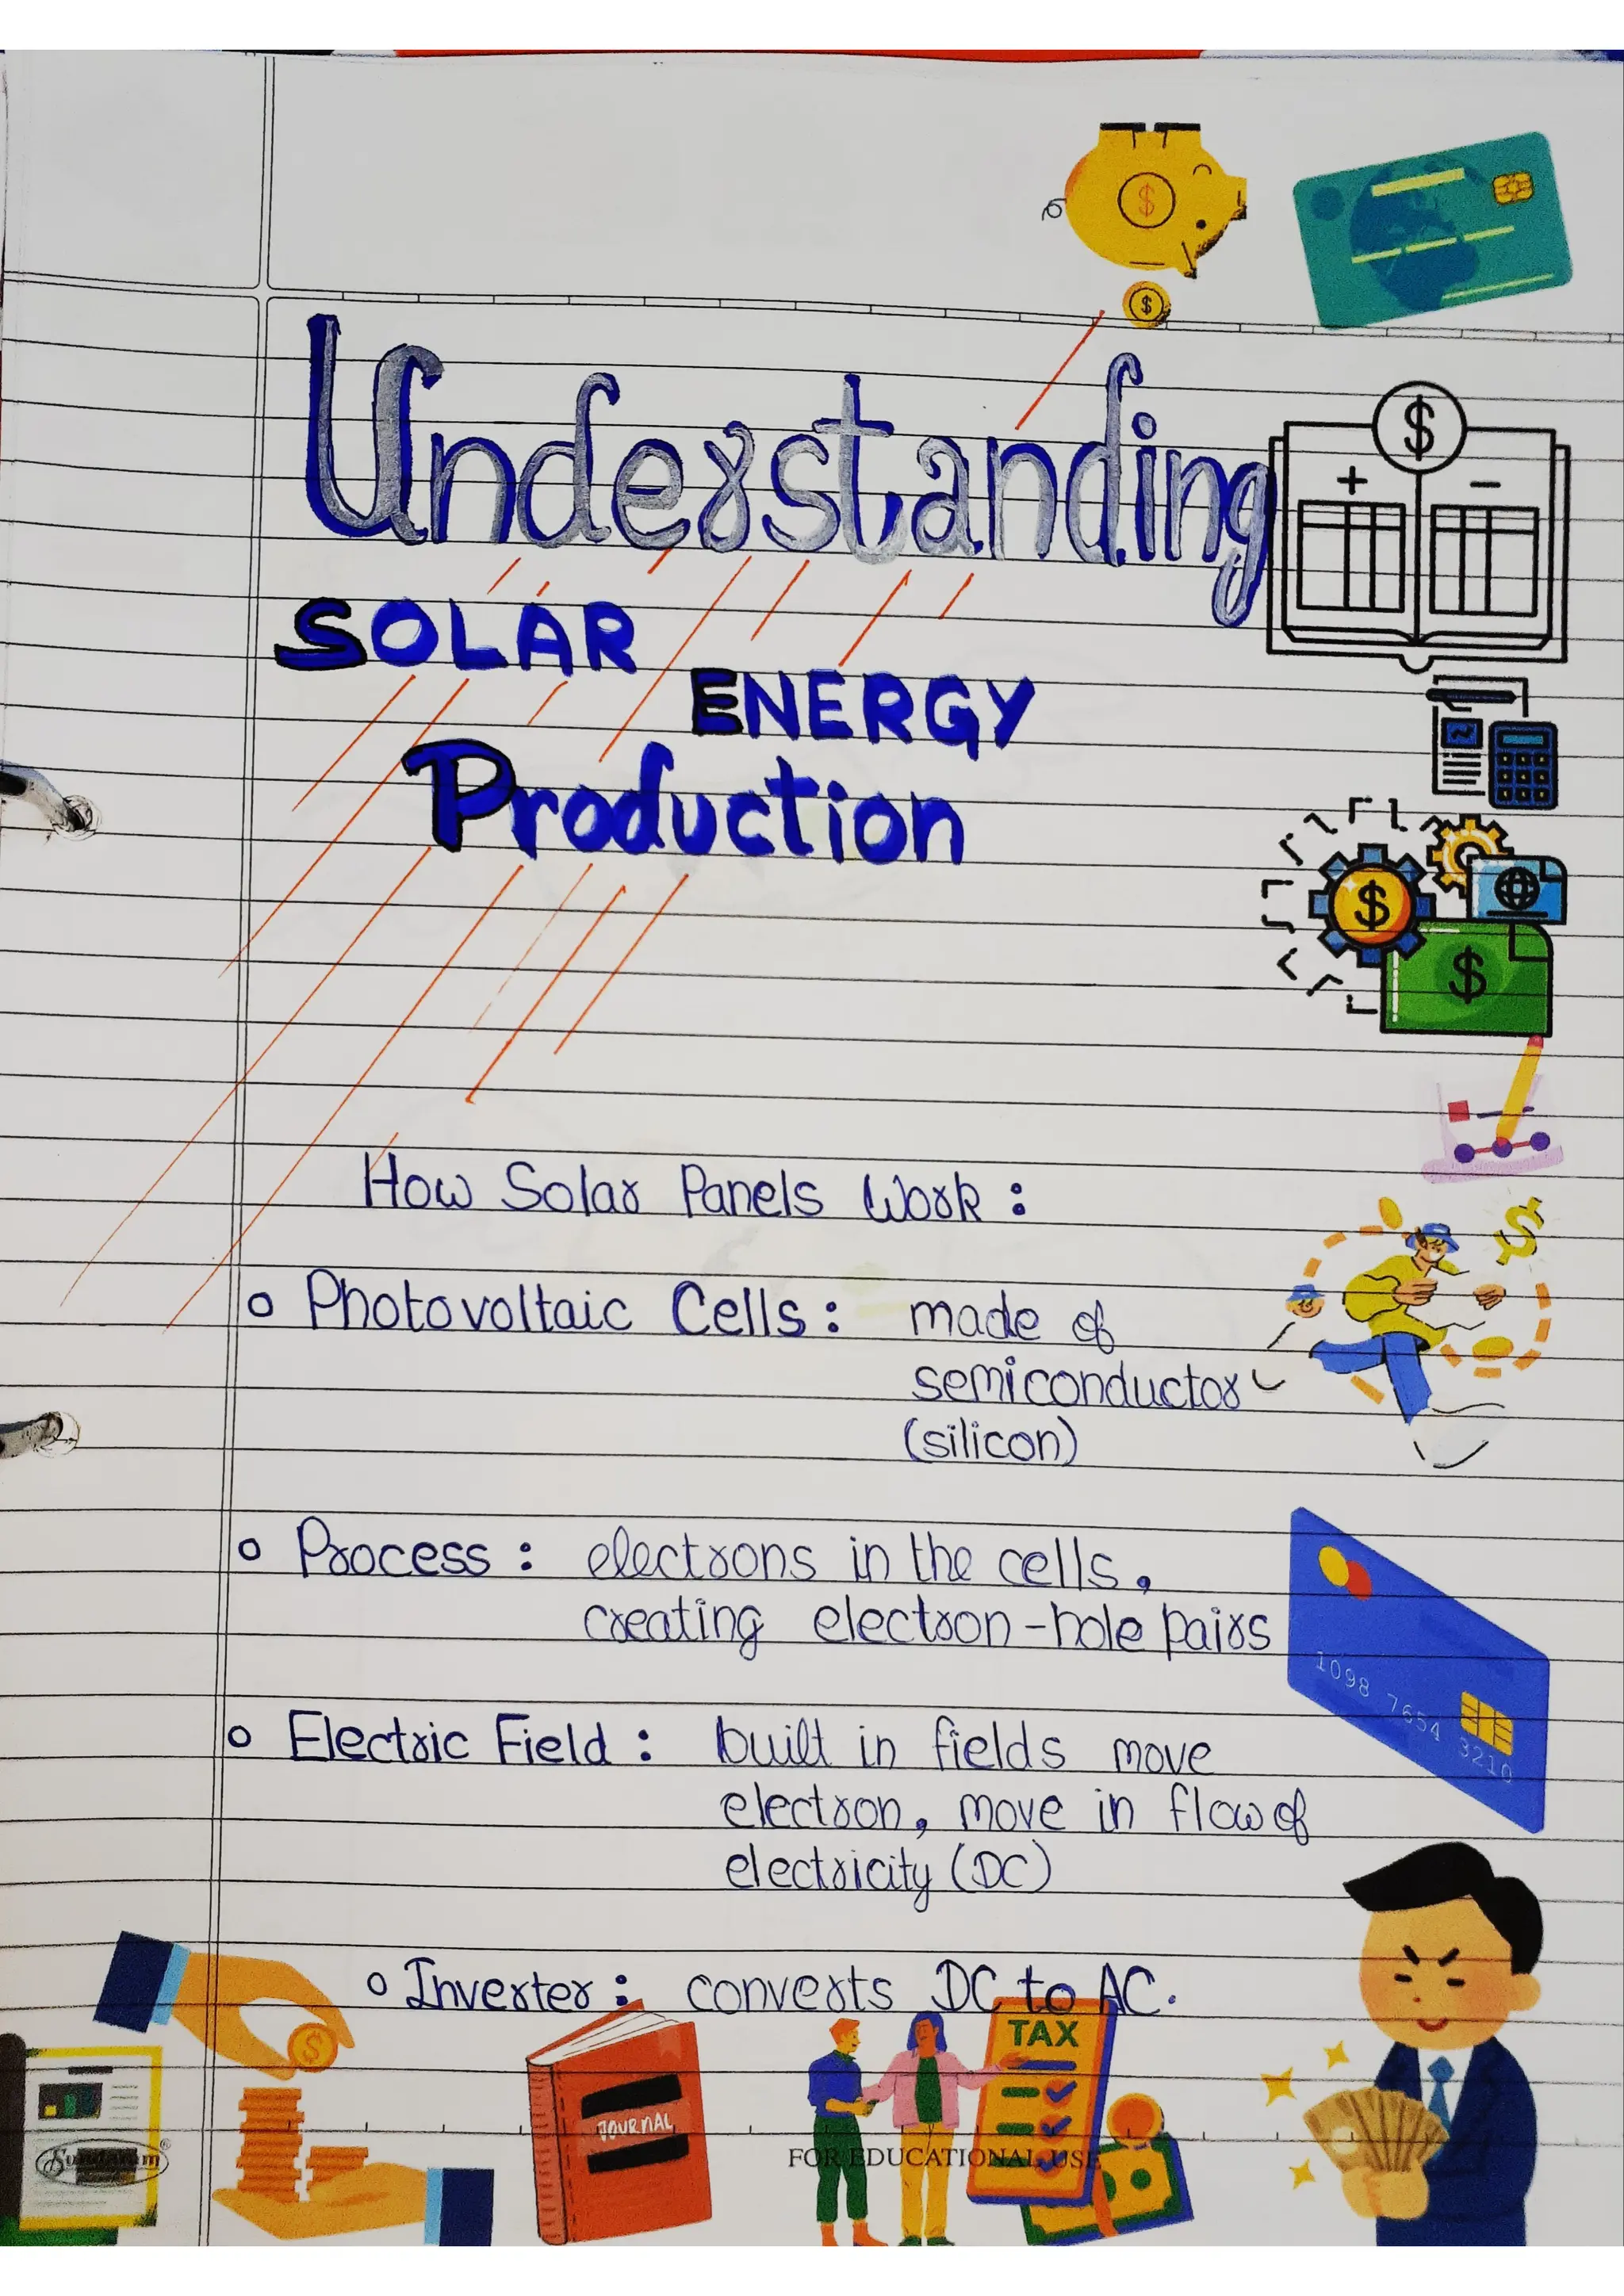 Understanding
SOLAR
ENERGY
Production
How Solar Panels Work :
o Photovoltaic Cells : made of
semiconductor
(silicon)
o Process : electrons in the cells,
creating electron-hole pairs
1098 7654 3210
o Electric Field : built in fields move
electron, move in flow of
electricity (DC)
o Inverter : converts DC to AC.
TAX
JOURNAL
Sundaram
FOR EDUCATIONAL USE